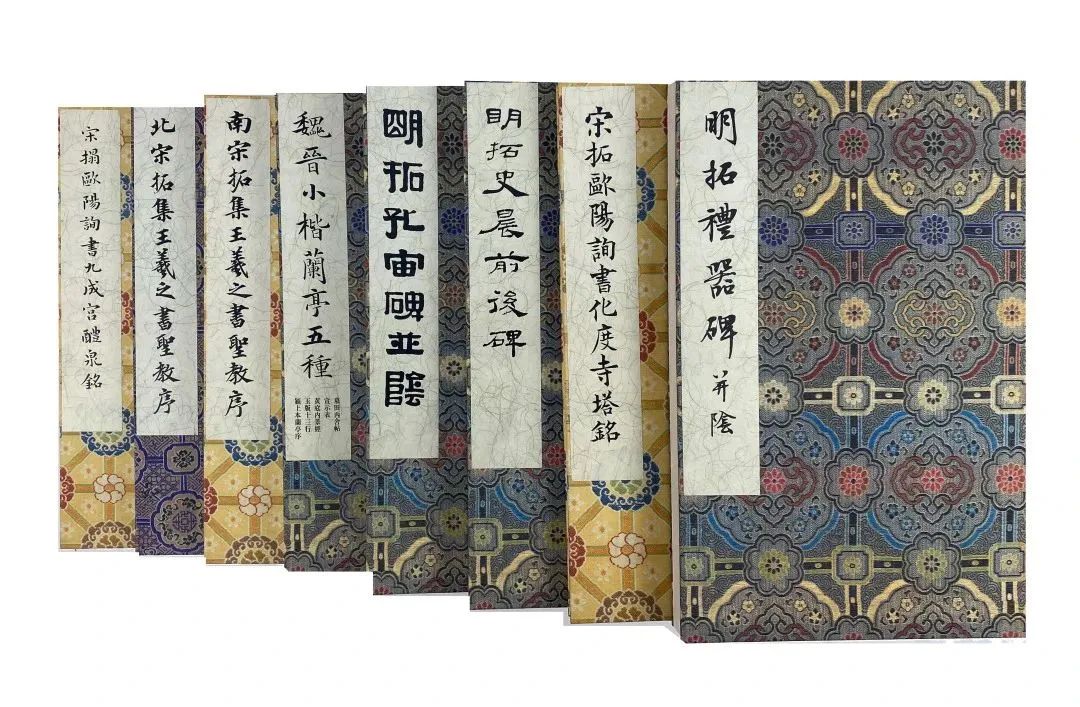 宋搨歐陽詢書九成宮醴泉銘
北宋拓集王羲之書聖教序
南宋拓集王羲之書聖教序
魏晉小楷蘭亭五種
墓田丙舍帖
宣示表
黃庭內景經
玉版十三行
潁上本蘭亭序
明拓孔宙碑並陰
明拓史晨前後碑
宋拓歐陽詢書化度寺塔銘
明拓禮器碑 并陰